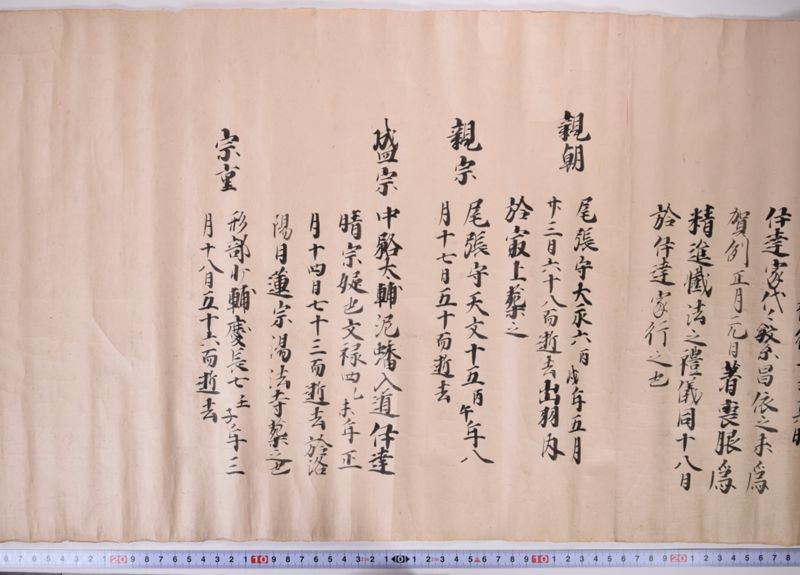 伊達家代々繁昌依之来為
賀例正月元日著喪服為
精進懺法之禮儀同十八日
於伊達家行之也
親朝
尾張守大永六丙戌年五月
廿三日六十八而逝去出羽内
於最上葬之
親宗
尾張守天文十五丙午年八
月十七日五十而逝去
盛宗
中務太輔泥蟠入道伊達
晴宗婿也文禄四乙未年正
月十四日七十三而逝去於洛
陽月蓮宗湯法寺葬之也
宗重
形部少輔慶長七壬子年三
月十八日五十六而逝去